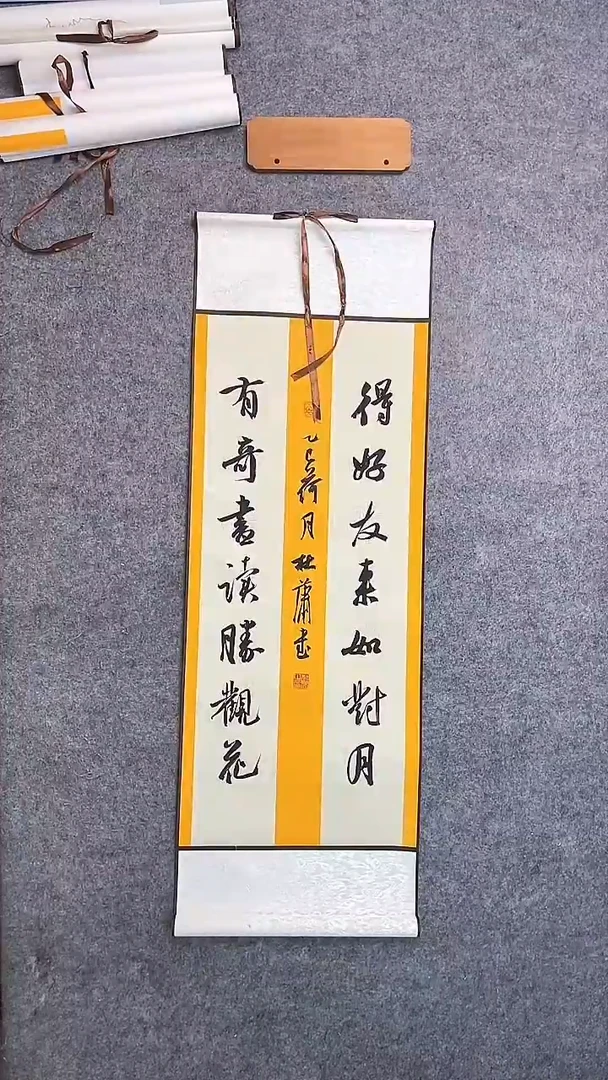 得好友来如對月
有奇書读勝觀花
乙巳荷月杜蕭書